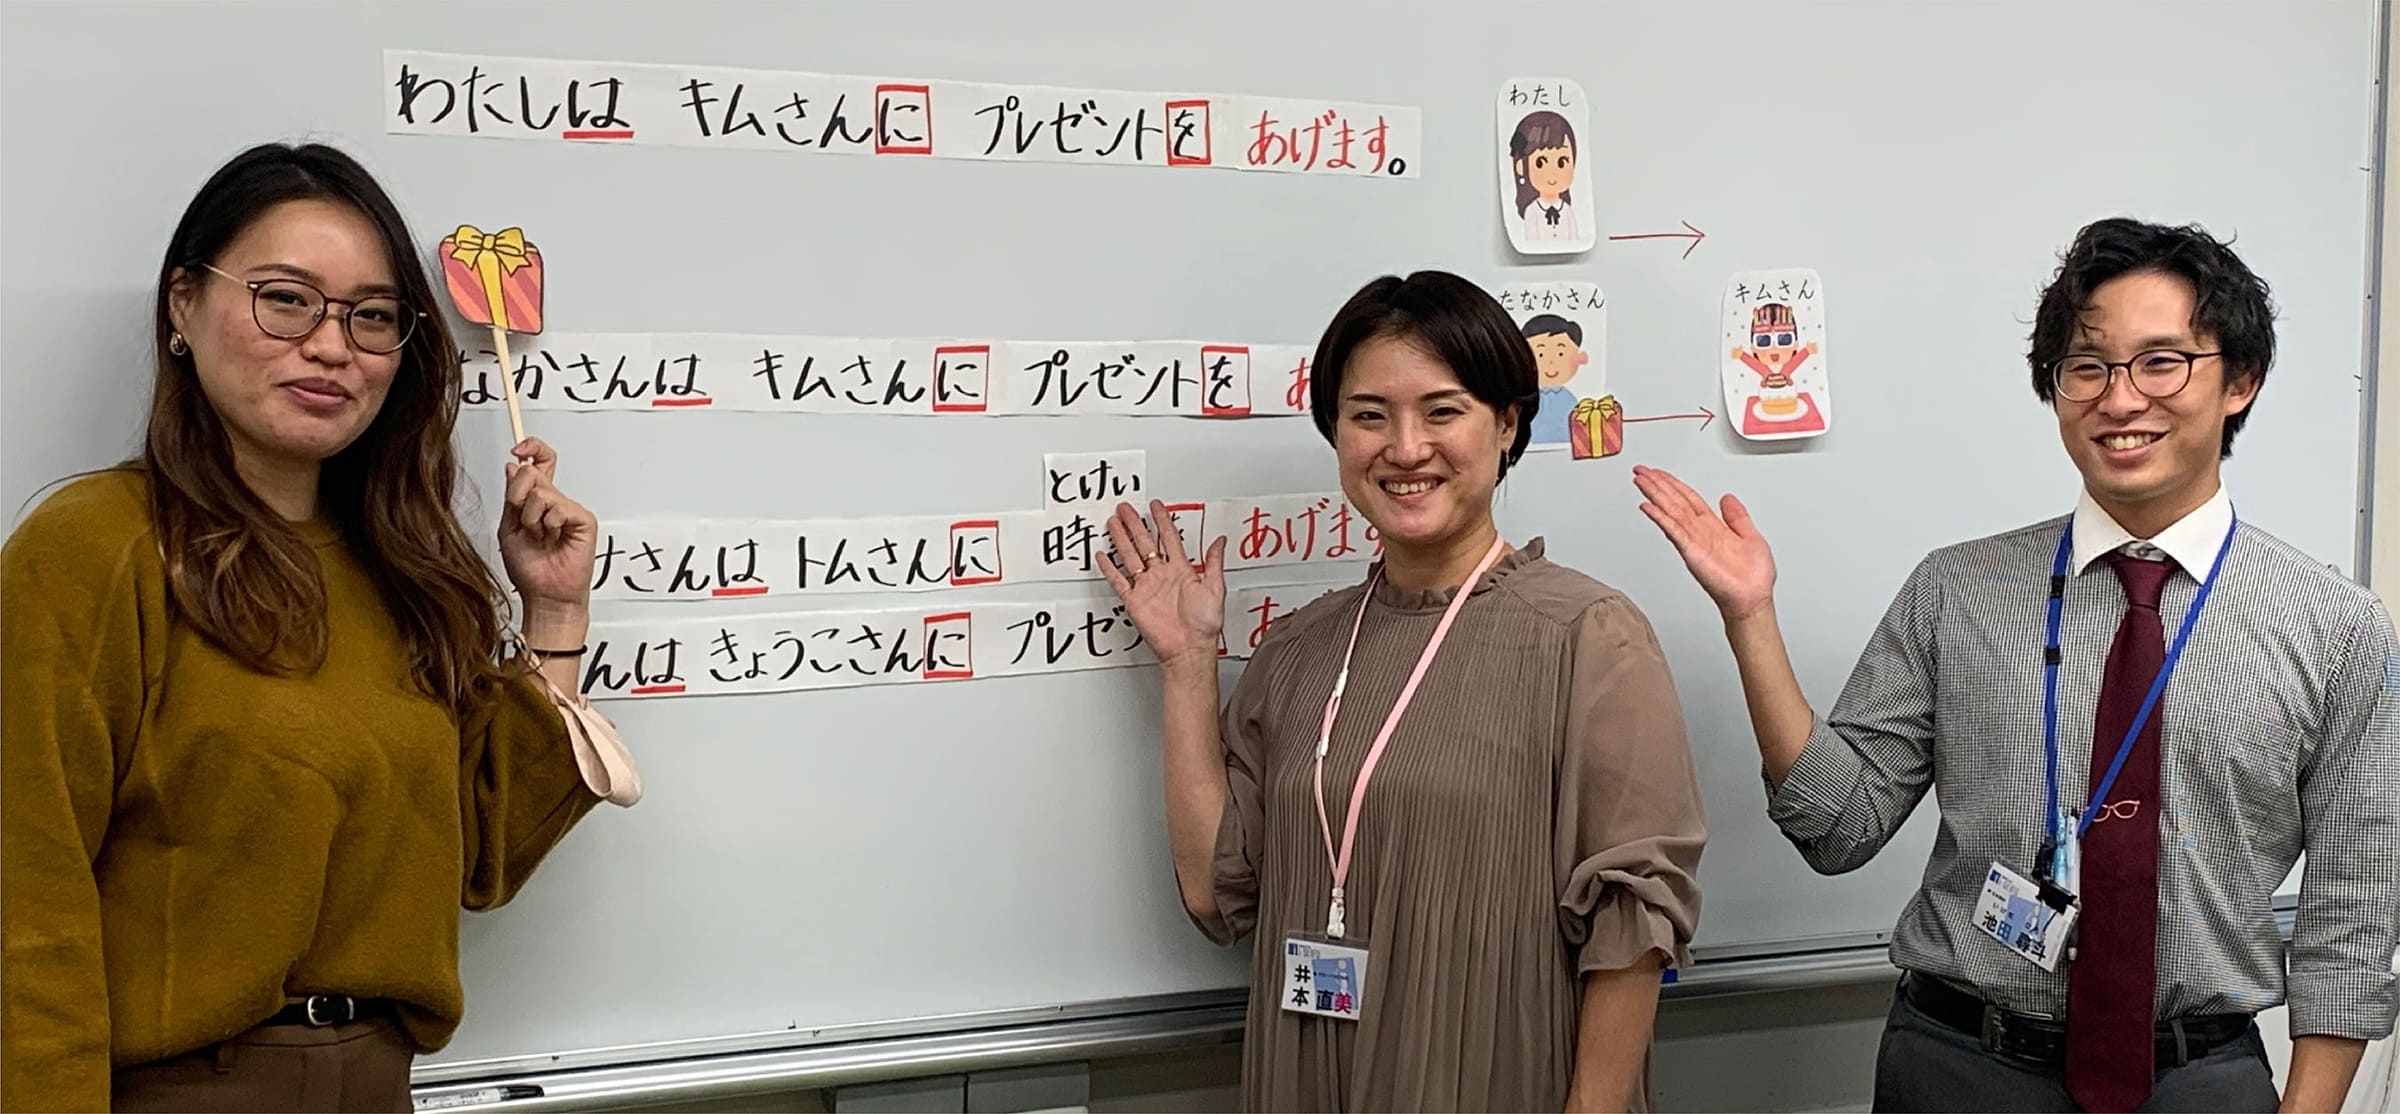 わたしは キムさんに プレゼントを あげます。
わたし
たなかさん
キムさん
なかさんは キムさんに プレゼントを あ
とけい
さんは トムさんに 時 を あげます
んは きょうこさんに プレゼン あ
井本 直美
池田 尋斗